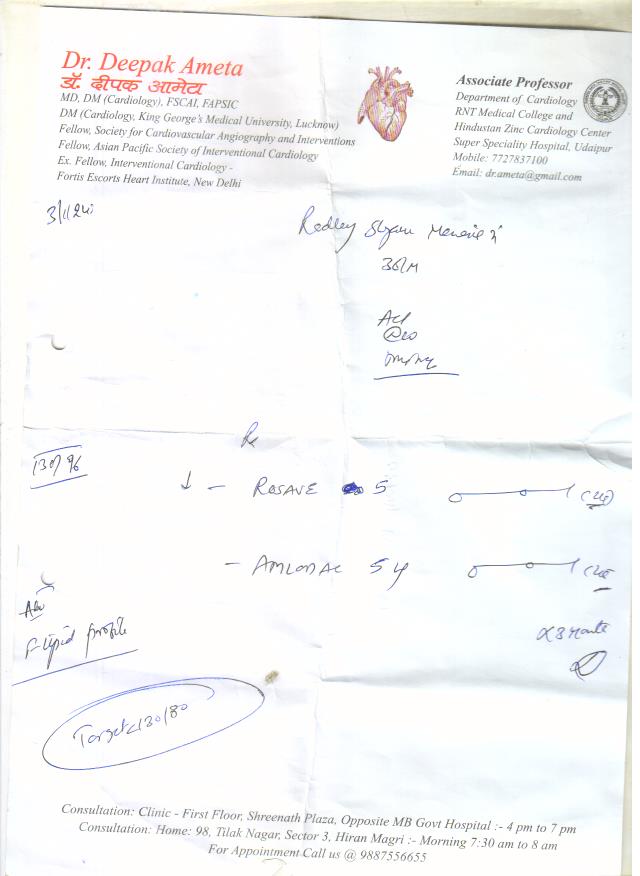 Dr. Deepak Ameta
डॉ. दीपक आमेटा
MD, DM (Cardiology), FSCAI, FAPSIC
DM (Cardiology, King George's Medical University, Lucknow)
Fellow, Society for Cardiovascular Angiography and Interventions
Fellow, Asian Pacific Society of Interventional Cardiology
Ex. Fellow, Interventional Cardiology -
Fortis Escorts Heart Institute, New Delhi
Associate Professor
Department of Cardiology
RNT Medical College and
Hindustan Zinc Cardiology Center
Super Speciality Hospital, Udaipur
Mobile: 7727837100
Email: dr.ameta@gmail.com
3/1/24
Shyam
36/M
Rx
130/96
↓ - ROSAVE 5
- AMLODAC 5
Adv
F-lipid profile
Target <130/80
Consultation: Clinic - First Floor, Shreenath Plaza, Opposite MB Govt Hospital :- 4 pm to 7 pm
Consultation: Home: 98, Tilak Nagar, Sector 3, Hiran Magri :- Morning 7:30 am to 8 am
For Appointment Call us @ 9887556655